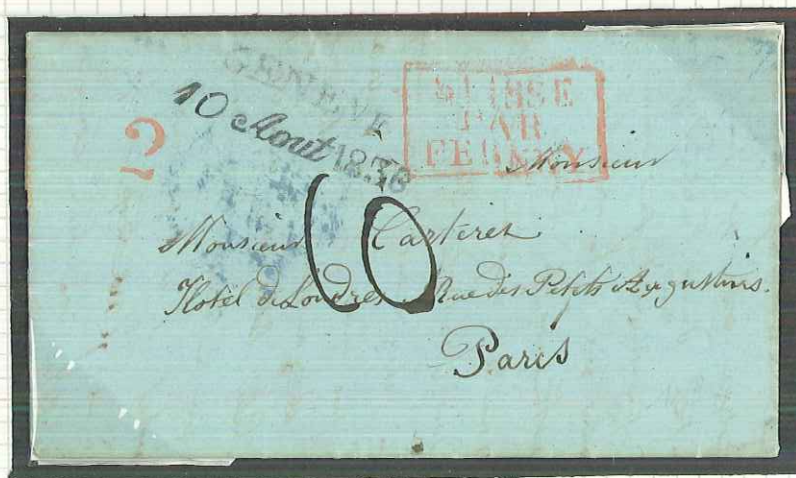 GENEVE
10 Aout 1836
2
SUISSE
PAR
FERNEY
Monsieur
Monsieur Carteret
6
Hotel de Londres, Rue des Petits Augustins.
Paris